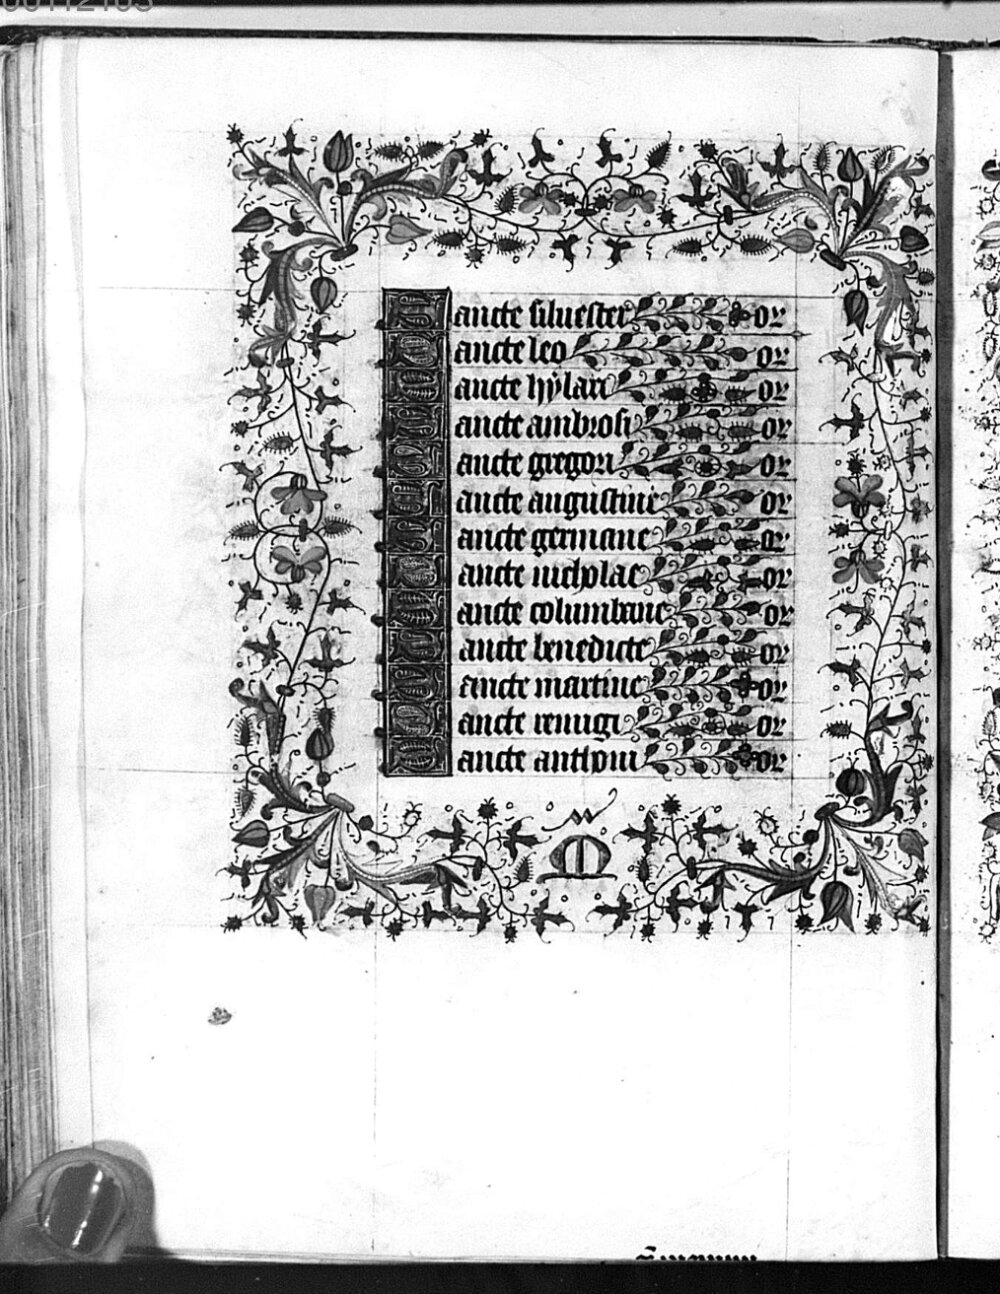 Sancte siluester or
Sancte leo or
Sancte hylari or
Sancte ambrosi or
Sancte gregori or
Sancte augustine or
Sancte germane or
Sancte nicholae or
Sancte columbane or
Sancte benedicte or
Sancte martine or
Sancte remigi or
Sancte anthoni or
M